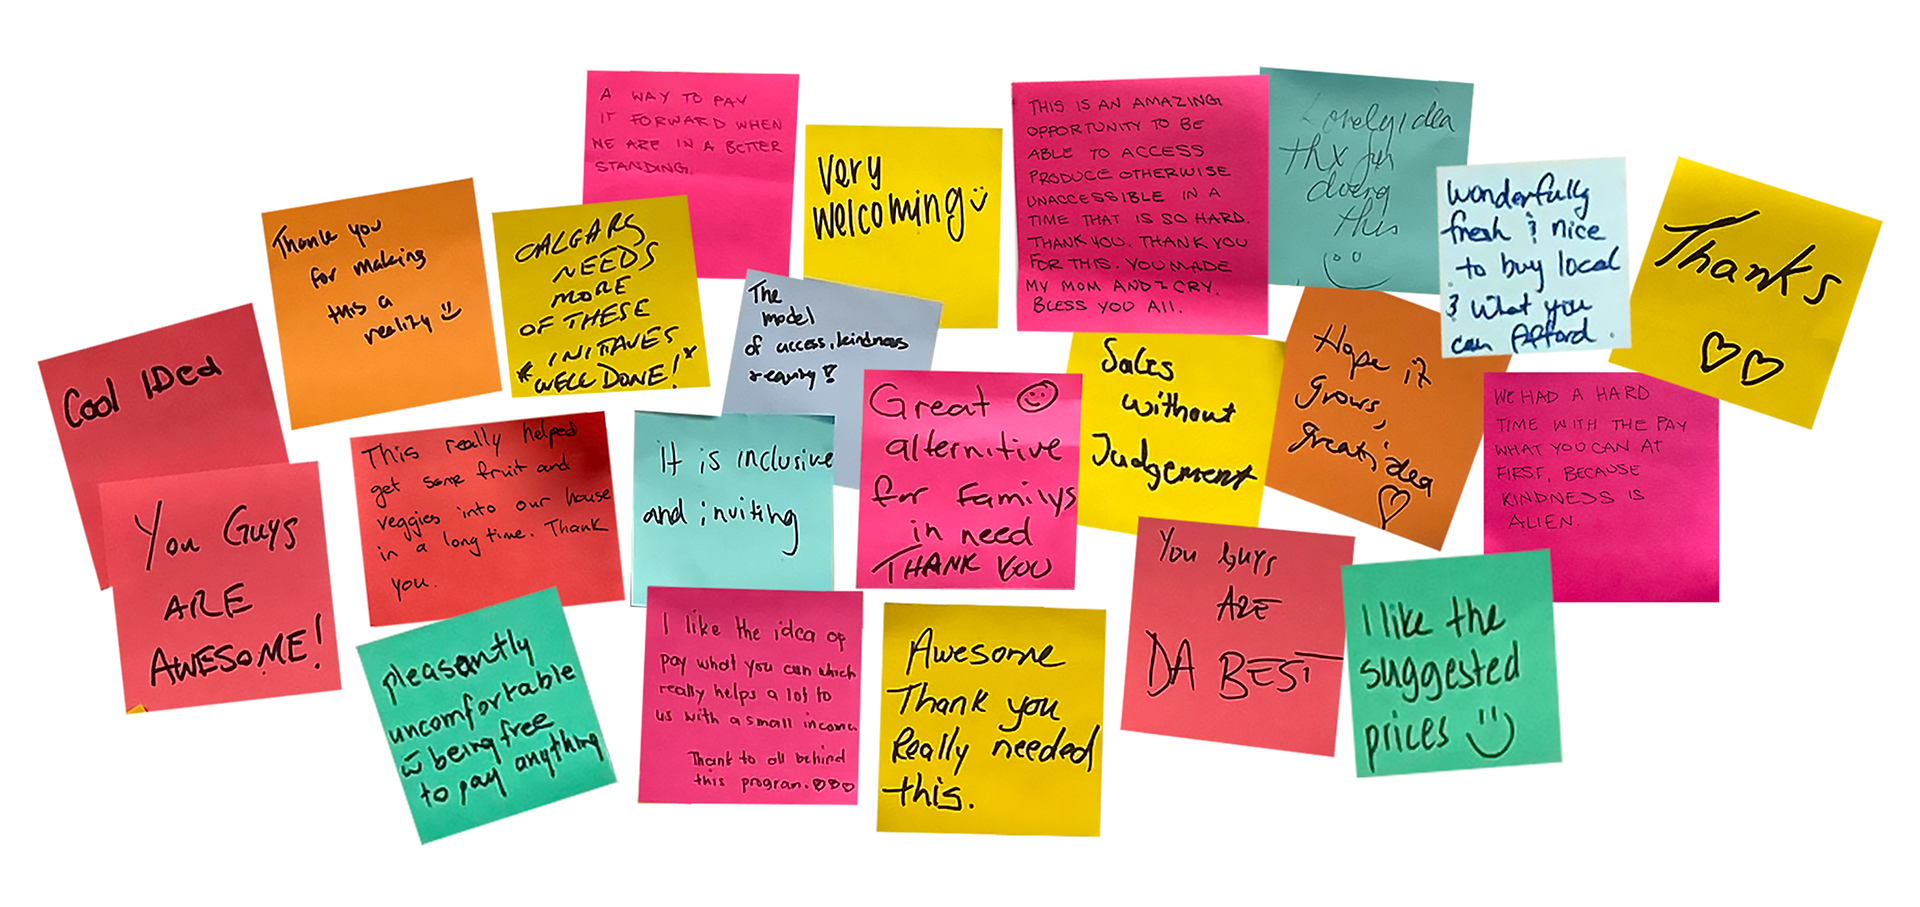 A WAY TO PAY
IT FORWARD WHEN
WE ARE IN A BETTER
STANDING.
Very
welcoming
THIS IS AN AMAZING
OPPORTUNITY TO BE
ABLE TO ACCESS
PRODUCE OTHERWISE
UNACCESSIBLE IN A
TIME THAT IS SO HARD.
THANK YOU. THANK YOU
FOR THIS. YOU MADE
MY MOM AND I CRY.
BLESS YOU All.
Lovely idea
thx for
doing
this
Wonderfully
fresh & nice
to buy local
& what you
can Afford.
Thanks
Thank you
for making
this a
reality
CALGARY
NEEDS
MORE
OF THESE
INITAVES
*WELL DONE!*
The
model
of access, kindness
reality!!
Cool IDea
This really helped
get some fruit and
veggies into our house
in a long time. Thank
you.
It is inclusive
and inviting
Great
alternitive
for Familys
in need
THANK YOU
Sales
without
Judgement
Hope it
Grows,
great idea
WE HAD A HARD
TIME WITH THE PAY
WHAT YOU CAN AT
FIRST, BECAUSE
KINDNESS IS
ALIEN.
You Guys
ARE
AWESOME!
pleasantly
uncomfortable
being free
to pay anything
I like the idea of
pay what you can which
really helps a lot to
us with a small income.
Thank to all behind
this program.
Awesome
Thank you
Really needed
this.
You Guys
ARE
DA BEST
I like the
suggested
prices